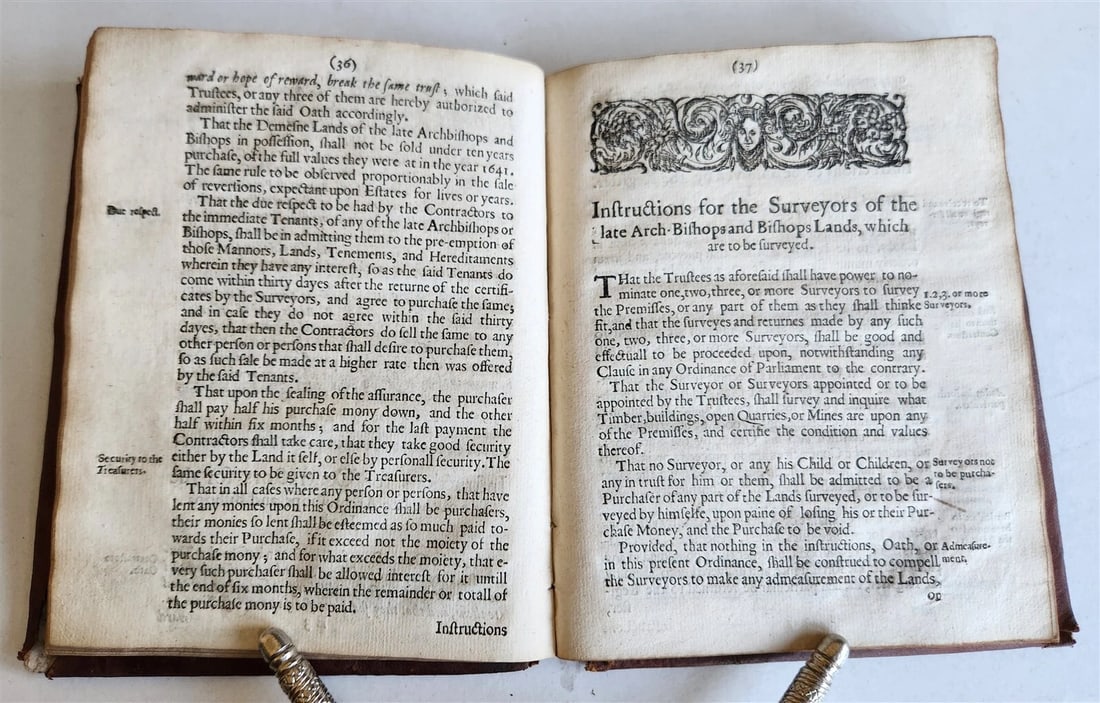 (36)
ward or hope of reward, break the ſame truſt; which ſaid
Truſtees, or any three of them are hereby authorized to
adminiſter the ſaid Oath accordingly.
That the Demeſne Lands of the late Archbiſhops and
Biſhops in poſſeſſion, ſhall not be ſold under ten years
purchaſe, of the full values they were at in the year 1641.
The ſame rule to be obſerved proportionably in the ſale
of reverſions, expectant upon Eſtates for lives or years.
Due reſpect.
That the due reſpect to be had by the Contractors to
the immediate Tenants, of any of the late Archbiſhops or
Biſhops, ſhall be in admitting them to the pre-emption of
thoſe Mannors, Lands, Tenements, and Hereditaments
wherein they have any intereſt, ſo as the ſaid Tenants do
come within thirty dayes after the returne of the certifi-
cates by the Surveyors, and agree to purchaſe the ſame;
and in caſe they do not agree within the ſaid thirty
dayes, that then the Contractors do ſell the ſame to any
other perſon or perſons that ſhall deſire to purchaſe them,
ſo as ſuch ſale be made at a higher rate then was offered
by the ſaid Tenants.
That upon the ſealing of the aſſurance, the purchaſer
ſhall pay half his purchaſe mony down, and the other
half within ſix months; and for the laſt payment the
Contractors ſhall take care, that they take good ſecurity
Security to the
Treaſurers.
either by the Land it ſelf, or elſe by perſonall ſecurity. The
ſame ſecurity to be given to the Treaſurers.
That in all caſes where any perſon or perſons, that have
lent any monies upon this Ordinance ſhall be purchaſers,
their monies ſo lent ſhall be eſteemed as ſo much paid to-
wards their Purchaſe, if it exceed not the moiety of the
purchaſe mony; and for what exceeds the moiety, that e-
very ſuch purchaſer ſhall be allowed intereſt for it untill
the end of ſix months, wherein the remainder or totall of
the purchaſe mony is to be paid.
Inſtructions
(37)
Inſtructions for the Surveyors of the
late Arch-Biſhops and Biſhops Lands, which
are to be ſurveyed.
THat the Truſtees as aforeſaid ſhall have power to no-
minate one, two, three, or more Surveyors to ſurvey
1.2.3. or more
Surveyors.
the Premiſſes, or any part of them as they ſhall thinke
fit, and that the ſurveyes and returnes made by any ſuch
one, two, three, or more Surveyors, ſhall be good and
effectuall to be proceeded upon, notwithſtanding any
Clauſe in any Ordinance of Parliament to the contrary.
That the Surveyor or Surveyors appointed or to be
appointed by the Truſtees, ſhall ſurvey and inquire what
Timber, buildings, open Quarries, or Mines are upon any
of the Premiſſes, and certifie the condition and values
thereof.
That no Surveyor, or any his Child or Children, or
Surveyors not
to be purcha-
ſers.
any in truſt for him or them, ſhall be admitted to be a
Purchaſer of any part of the Lands ſurveyed, or to be ſur-
veyed by himſelfe, upon paine of loſing his or their Pur-
chaſe Money, and the Purchaſe to be void.
Provided, that nothing in the inſtructions, Oath, or
Admeaſure-
ment.
in this preſent Ordinance, ſhall be conſtrued to compell
the Surveyors to make any admeaſurement of the Lands,
or